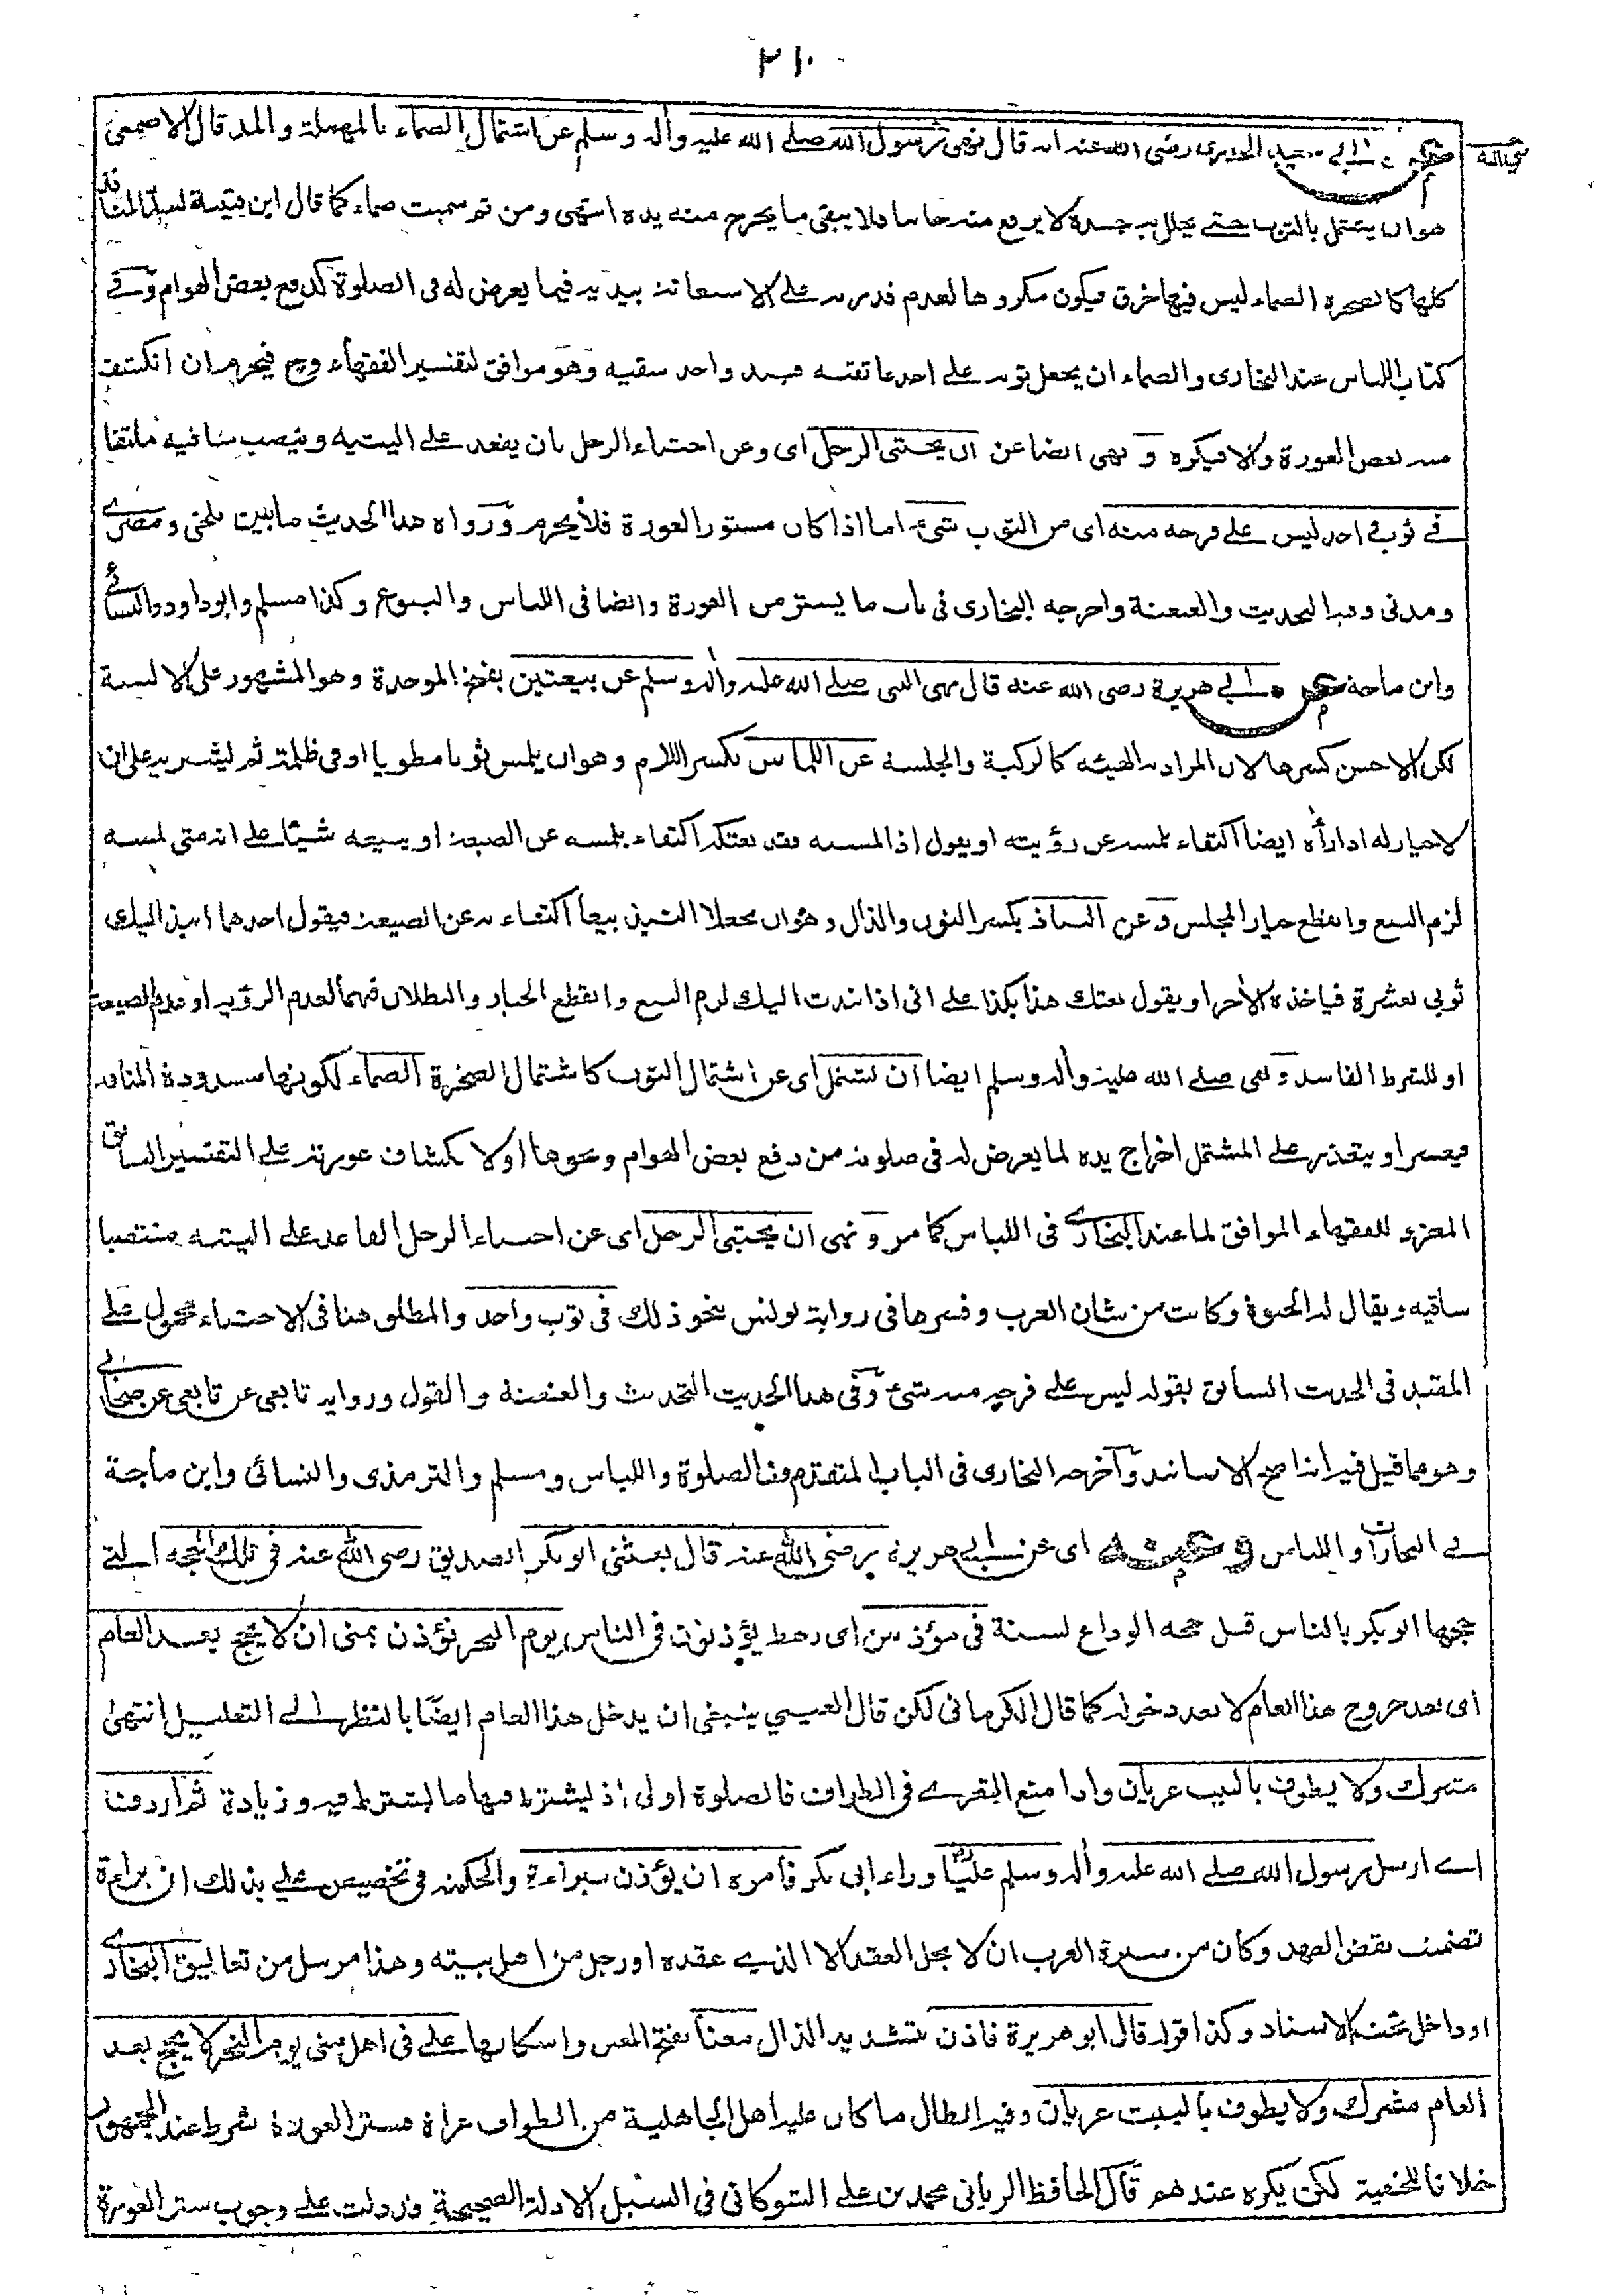 ٢١٠
عن ابي سعيد الخدري رضي الله عنه انه قال نهى رسول الله صلى الله عليه وأله وسلم عن اشتمال الصماء بالمهملة والمد قال الاصمعي
هو ان يشتمل بالثوب حتى يجلل به جسده لا يرفع منه جانبا فلا يبقى ما يخرج منه يده انتهى ومن ثم سميت صماء كما قال ابن قتيبة لسد المنافذ
كلها كالصخرة الصماء ليس فيها خرق فيكون مكروها لعدم قدرته على الاستعانة بيديه فيما يعرض له فى الصلوة كدفع بعض الهوام وفى
كتاب اللباس عند البخارى والصماء ان يجعل ثوبه على احد عاتقيه فيبد واحد شقيه وهو موافق لتفسير الفقهاء وح فيحرم ان انكشف
منه بعض العورة والا فيكره و نهى ايضا عن ان يحتبى الرجل اى وعن احتباء الرجل بان يقعد على اليتيه وينصب ساقيه ملتفا
فى ثوب واحد ليس على فرجه منه اى من الثوب شىء اما اذا كان مستور العورة فلا يحرم ورواة هذا الحديث ما بين بلخى ومصرى
ومدنى وفيه التحديث والعنعنة واخرجه البخارى فى باب ما يستر من العورة وايضا فى اللباس والبيوع وكذا مسلم وابو داود والنسائى
وابن ماجة عن ابي هريرة رضى الله عنه قال نهى النبى صلى الله عليه وأله وسلم عن بيعتين بفتح الموحدة وهو المشهور على الالسنة
لكن الاحسن كسرها لان المراد به الهيئه كالركبة والجلسة عن اللماس بكسر اللام وهو ان يلمس ثوبا مطويا او فى ظلمة ثم يشتريه على ان
لا خيار له اذا رأه ايضا اكتفاء بلمسه عن رؤيته او يقول اذا لمسته فقد بعتكه اكتفاء بلمسه عن الصيغة او يبيعه شيئا على انه متى لمسه
لزم البيع وانقطع خيار المجلس و عن النباذ بكسر النون والذال وهو ان يجعلا النبذ بيعا اكتفاء به عن الصيغة فيقول احدهما انبذ اليك
ثوبى بعشرة فياخذه الأخر او يقول بعتك هذا بكذا على انى اذا نبذت اليك لزم البيع وانقطع الخيار والبطلان فيهما لعدم الرؤية او عدم الصيغة
او للشرط الفاسد و نهى صلى الله عليه وأله وسلم ايضا ان يشتمل اى عن اشتمال الثوب كاشتمال الصخرة الصماء لكونها مسدودة المنافذ
فيعسر او يتعذر على المشتمل اخراج يده لما يعرض له فى صلوته من دفع بعض الهوام ونحوها او لانكشاف عورته على التفسير السابق
المعزو للفقهاء الموافق لما عند البخارى فى اللباس كما مر و نهى ان يحتبى الرجل اى عن احتباء الرجل القاعد على اليتيه منتصبا
ساقيه ويقال له الحبوة وكانت من شان العرب وفسرها فى رواية يونس بنحو ذلك فى ثوب واحد والمطلق هنا فى الاحتباء محمول على
المقيد فى الحديث السابق بقوله ليس على فرجه منه شىء وفى هذا الحديث التحديث والعنعنة والقول ورواية تابعى عن تابعى عن صحابى
وهو مما قيل فيه انه اصح الاسانيد وأخرجه البخارى فى الباب المتقدم وفى الصلوة واللباس ومسلم والترمذى والنسائى وابن ماجة
فى التجارات واللباس وعنه اى عن ابي هريرة رضى الله عنه قال بعثنى ابو بكر الصديق رضى الله عنه فى تلك الحجة التى
حجها ابو بكر بالناس قبل حجة الوداع بسنة فى مؤذنين اى رهط يؤذنون فى الناس يوم النحر نؤذن بمنى ان لا يحج بعد العام
اى بعد خروج هذا العام لا بعد دخوله كما قال الكرمانى لكن قال العينى ينبغى ان يدخل هذا العام ايضًا بالنظر الى التعليل انتهى
مشرك ولا يطوف بالبيت عريان واذا منع التعرى فى الطواف فالصلوة اولى اذ يشترط فيها ما يشترط فيه وزيادة ثم اردف
اى ارسل رسول الله صلى الله عليه وأله وسلم عليا رض وراء ابى بكر فأمره ان يؤذن ببراءة والحكمة فى تخصيص على بذلك ان براءة
تضمنت نقض العهد وكان من سيرة العرب ان لا يحل العقد الا الذى عقده او رجل من اهل بيته وهذا مرسل من تعاليق البخارى
او داخل تحت الاسناد وكذا قوله قال ابو هريرة فاذن بتشديد الذال معنا بفتح العين واسكانها على فى اهل منى يوم النحر لا يحج بعد
العام مشرك ولا يطوف بالبيت عريان وفيه ابطال ما كان عليه اهل الجاهلية من الطواف عراة فستر العورة شرط عند الجمهور
خلافا للحنفية لكن يكره عندهم قال الحافظ الربانى محمد بن على الشوكانى فى السيل الادلة الصحيحة قد دلت على وجوب ستر العورة